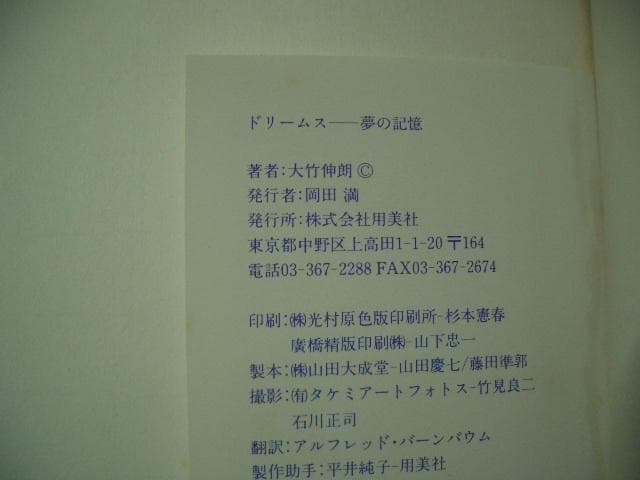 ドリームス——夢の記憶
著者:大竹伸朗©
発行者:岡田 満
発行所:株式会社用美社
東京都中野区上高田1-1-20〒164
電話03-367-2288 FAX03-367-2674
印刷:㈱光村原色版印刷所-杉本憲春
廣橋精版印刷㈱-山下忠一
製本:㈱山田大成堂-山田慶七/藤田準郭
撮影:㈲タケミアートフォトス-竹見良二
石川正司
翻訳:アルフレッド・バーンバウム
製作助手:平井純子-用美社